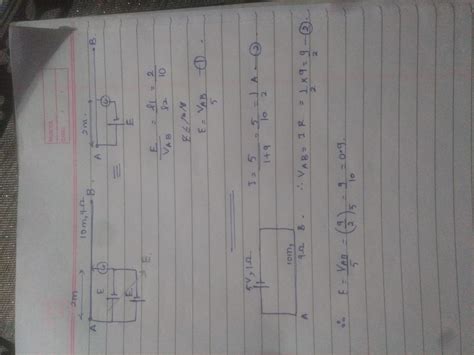 2m
10m, 9Ω
A
B
G
E
E
=
2m
A
B
G
E
E/V_AB = l1/l2 = 2/10
E = V_AB/5 - ①
5V, 1Ω
10m,
9Ω
A
B
I = 5/(1+9) = 5/10 = 1/2 A - ②
∴ V_AB = I R = 1/2 × 9 = 9/2 - ②
∴ E = V_AB/5 = (9/2)/5 = 9/10 = 0.9.